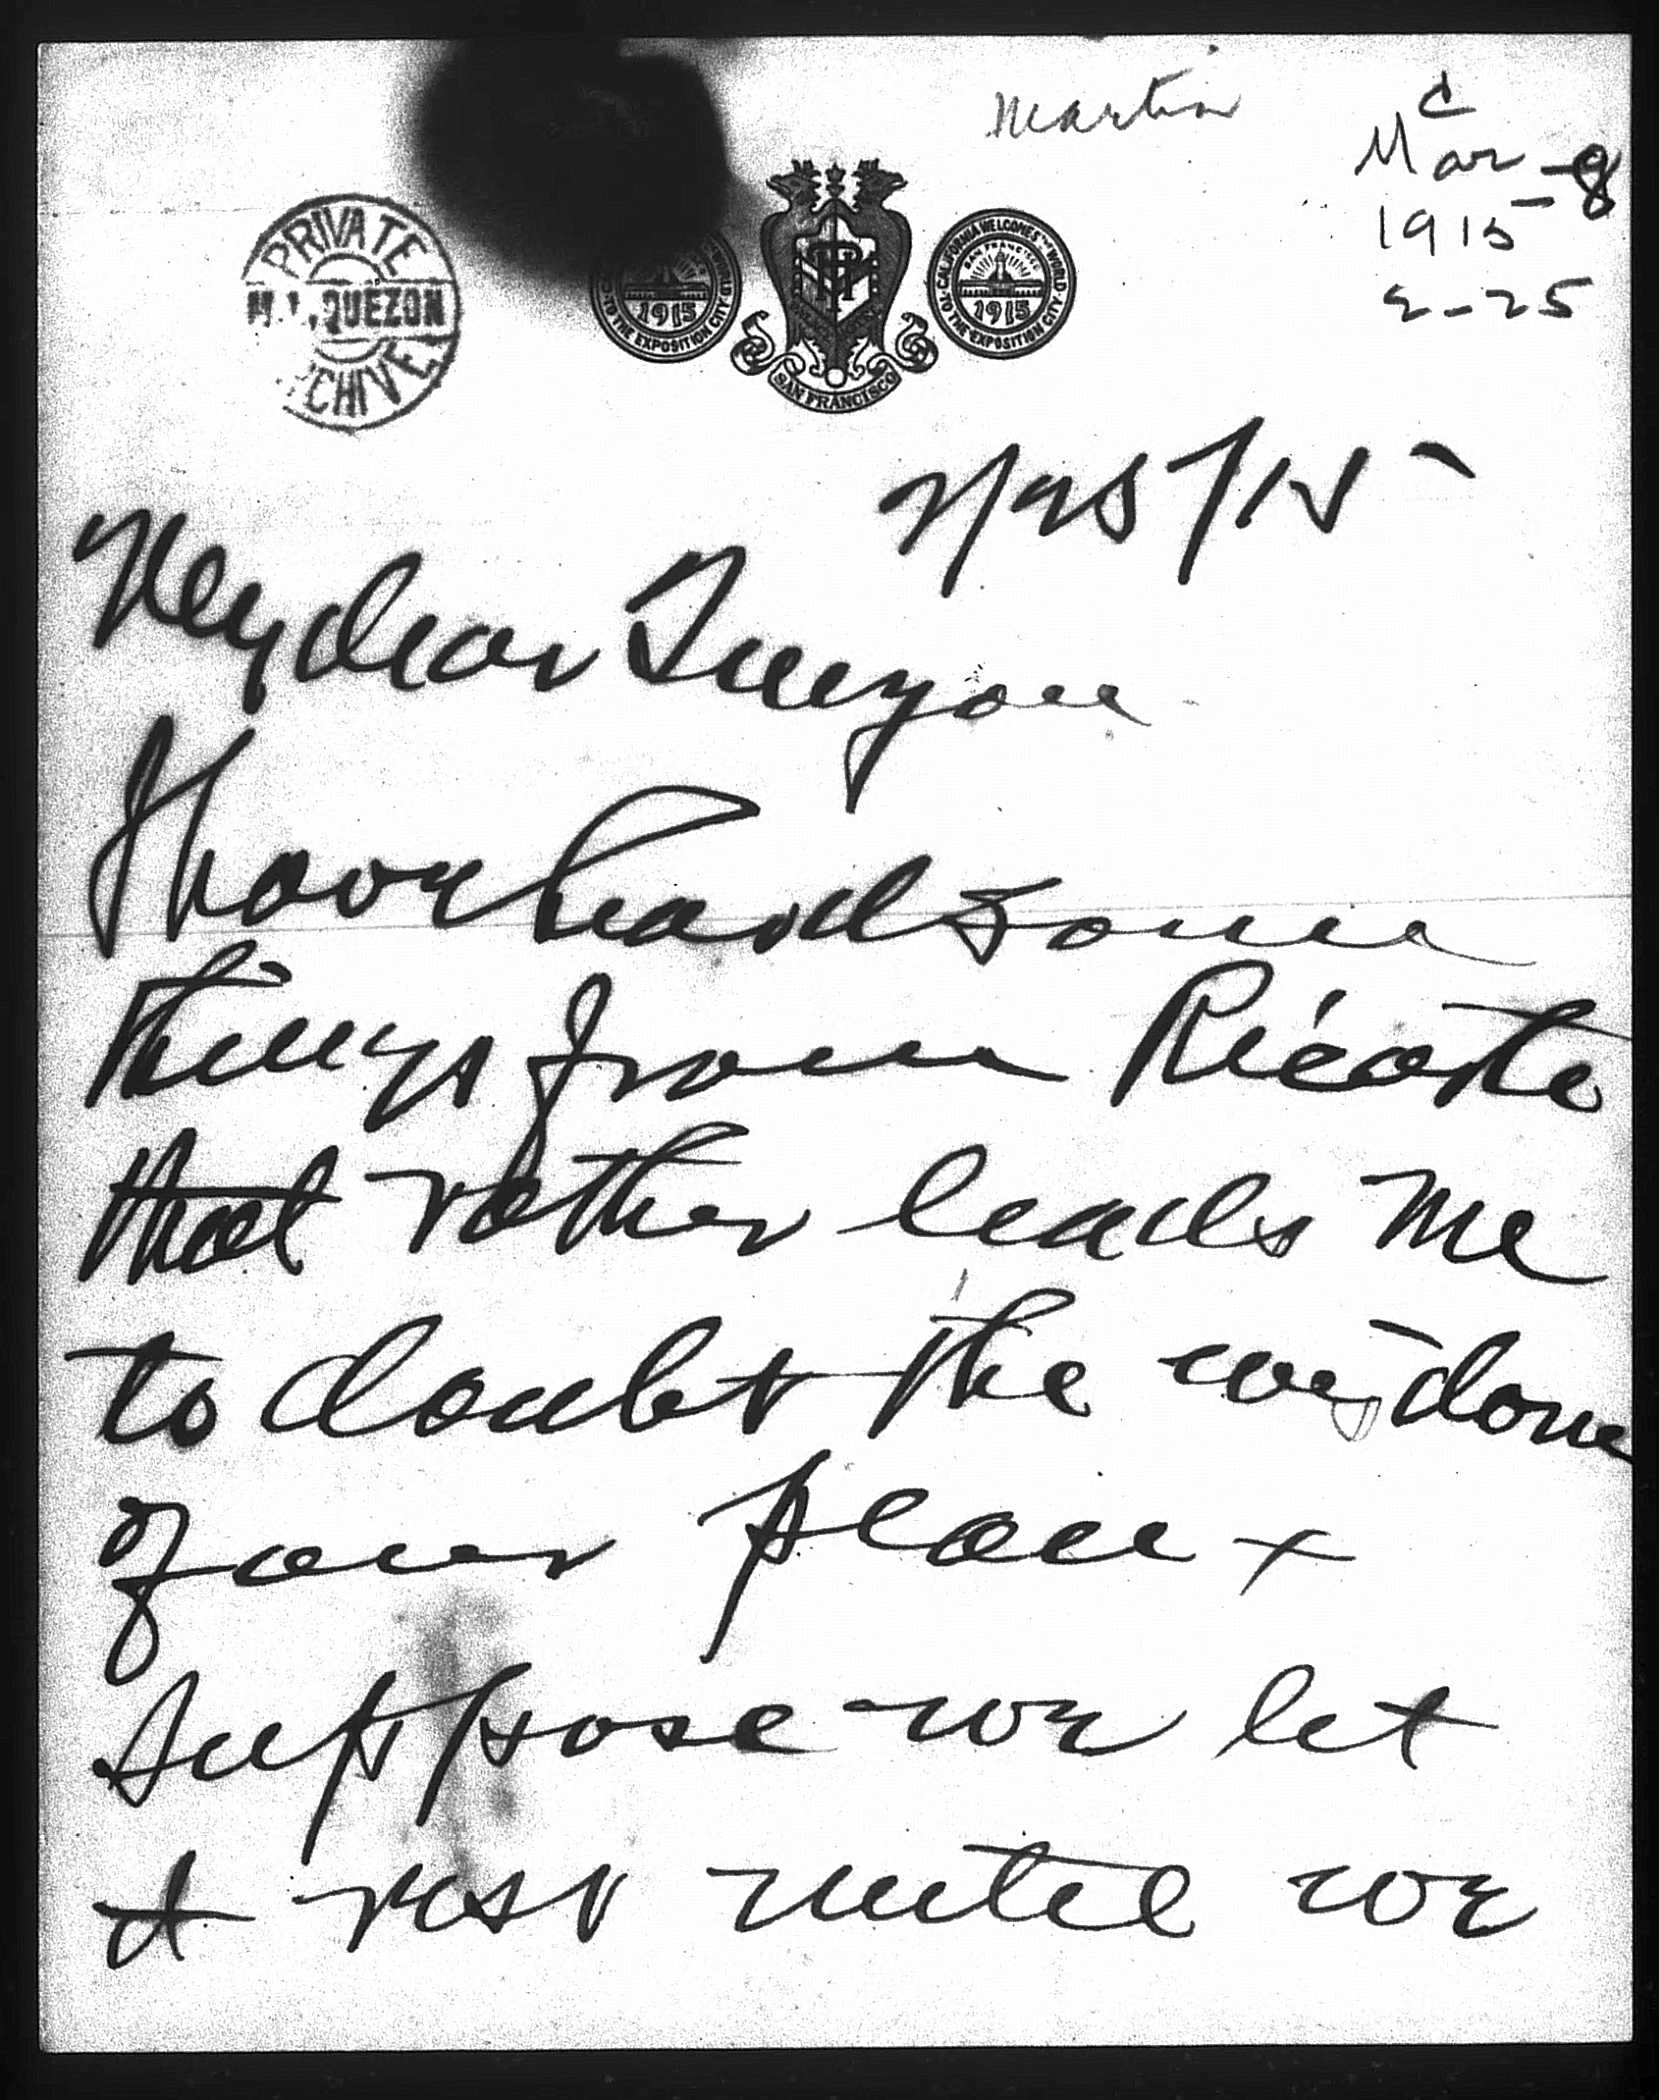 Martin
C
Mar-8
1915
2-25
PRIVATE
M. L. QUEZON
CHIVE
CALIFORNIA WELCOMES THE WORLD
SAN FRANCISCO
1915
TO THE EXPOSITION CITY
1915
TO THE EXPOSITION CITY
SAN FRANCISCO
2/25/15
My dear Quezon
I have heard some
things from Ricarte
that rather leads me
to doubt the wisdom
of our plan +
suppose we let
it rest until we